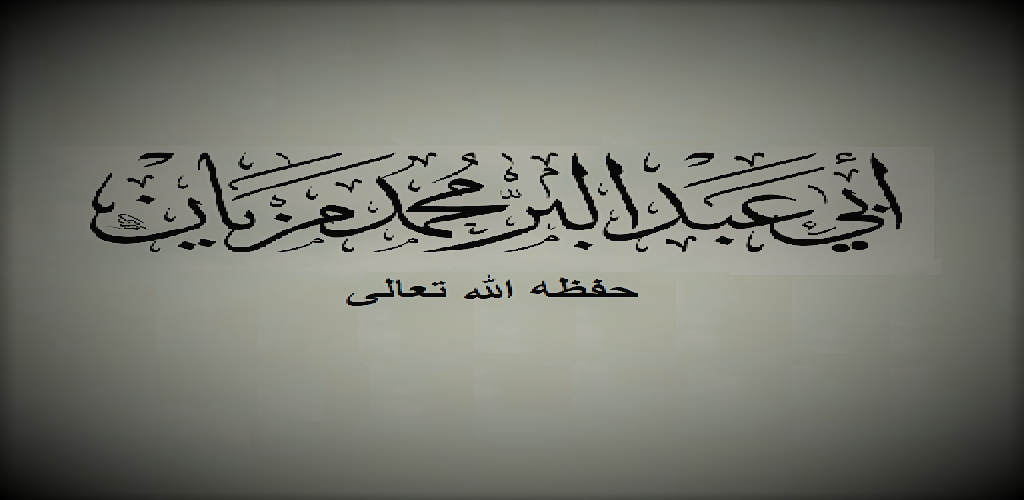 أبي عبد البر محمد مزيان
حفظه الله تعالى